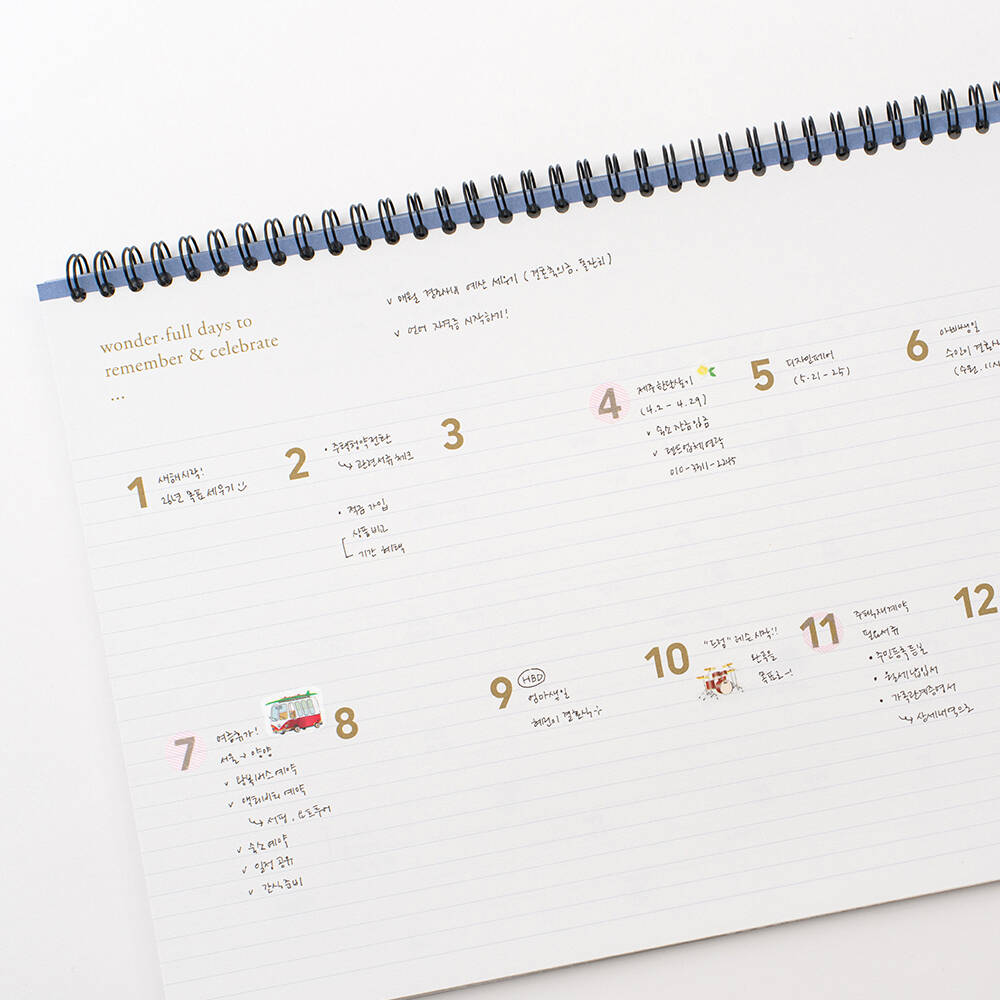 wonder·full days to
remember & celebrate
...
v 매월 경조사비 예산 세우기 (결혼축의금, 돌잔치)
v 언어 자격증 시작하기!
1
새해시작!
26년 목표세우기
2
• 주택청약전환
↳ 관련서류체크
• 적금가입
상품비교
기간 혜택
3
4
제주한달살이
(4.2 - 4.29)
v 숙소잔금입금
v 렌트업체연락
010-3911-2245
5
디자인페어
(5.21-25)
6
아빠생일
수인이 결혼식
7
여름휴가!
서울→양양
v 왕복버스예약
v 액티비티예약
↳ 서핑, 요트투어
v 숙소예약
v 일정공유
v 간식준비
8
9
HBD
엄마생일
혜연이 결혼식
10
"드럼" 레슨시작!!
완곡을
목표로~!
11
주택재계약
필요서류
• 주민등록등본
• 월세납입서
• 가족관계증명서
↳ 상세내역으로
12